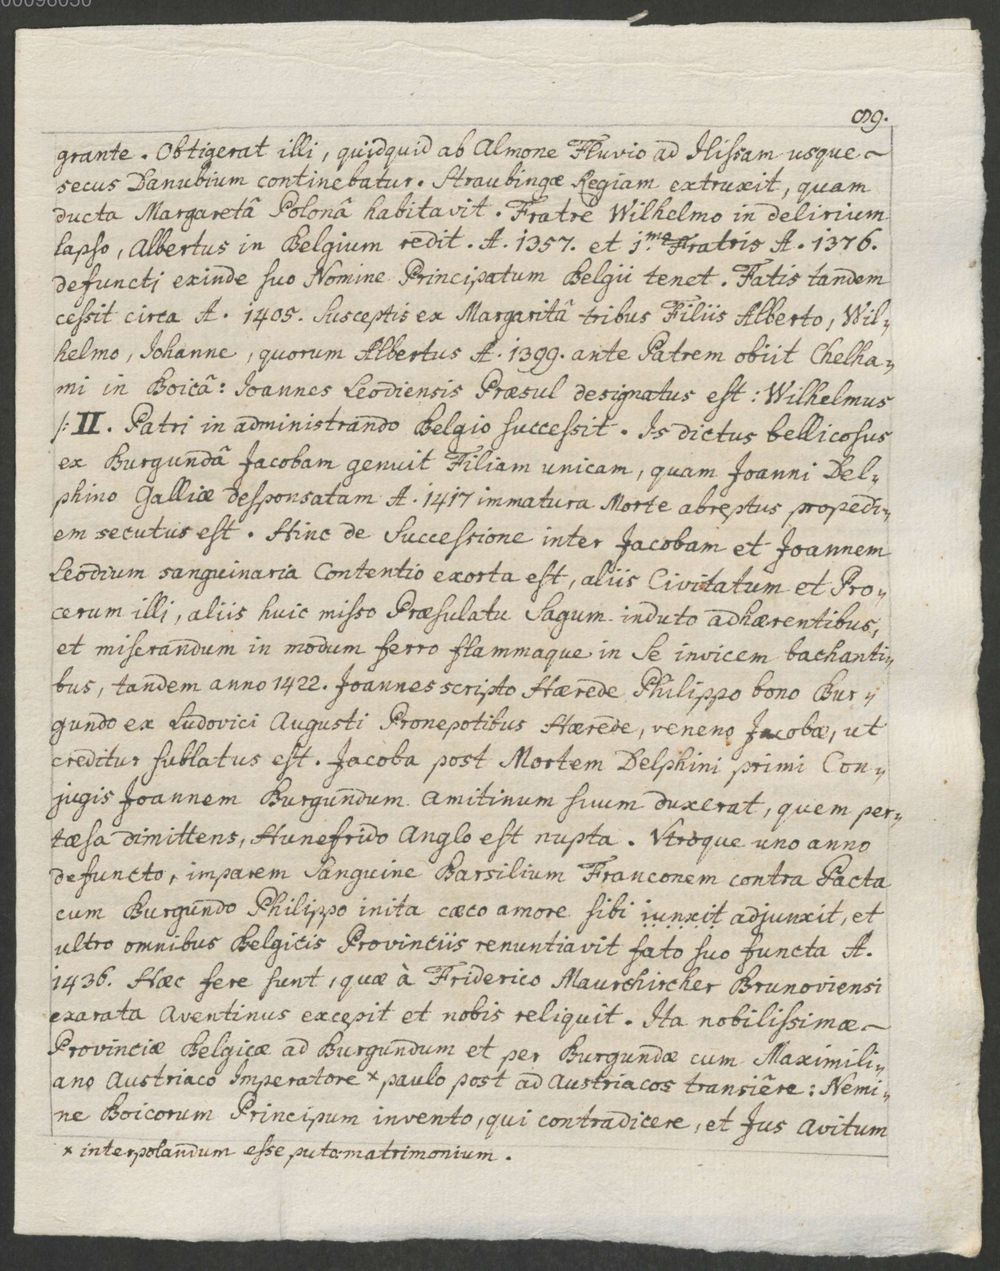 00098030
99.
grante. Obtigerat illi, quidquid ab Almone Fluvio ad Ilissam usque ~
secus Danubium continebatur. Straubingæ Regiam extruxit, quam
ducta Margaretâ Polonâ habitavit. Fratre Wilhelmo in delirium
lapso, Albertus in Belgium redit. A. 1357. et 1.mo Fratris A. 1376.
defuncti exinde suo Nomine Principatum Belgii tenet. Fatis tandem
cessit circa A. 1405. Susceptis ex Margaritâ tribus Filiis Alberto, Wil,,
helmo, Iohanne, quorum Albertus A. 1399. ante Patrem obiit Chelha,,
mi in Boicâ: Joannes Leodiensis Præsul designatus est: Wilhelmus
/: II. Patri in administrando Belgio successit. Is dictus bellicosus
ex Burgundâ Jacobam genuit Filiam unicam, quam Joanni Del,,
phino Galliæ desponsatam A. 1417 immatura Morte abreptus propedi,,
em secutus est. Hinc de Successione inter Jacobam et Joannem
Leodium sanguinaria Contentio exorta est, aliis Civitatum et Pro,,
cerum illi, aliis huic misso Præsulatu Sagum induto adhærentibus,
et miserandum in modum ferro flammaque in Se invicem bachanti,,
bus, tandem anno 1422. Joannes scripto Hærede Philippo bono Bur,,
gundo ex Ludovici Augusti Pronepotibus Hærede, veneno Jacobæ, ut
creditur sublatus est. Jacoba post Mortem Delphini primi Con,,
jugis Joannem Burgundum Amitinum suum duxerat, quem per,,
tæsa dimittens, Hunefrido Anglo est nupta. Vtroque uno anno
defuncto, imparem Sanguine Barsilium Franconem contra Pacta
cum Burgundo Philippo inita cæco amore sibi iunxit adjunxit, et
ultro omnibus Belgicis Provinciis renuntiavit fato suo functa A.
1436. Hæc fere sunt, quæ à Friderico Maurchircher Brunoviensi
exarata Aventinus excepit et nobis reliquit. Ita nobilissimæ ~
Provinciæ Belgicæ ad Burgundum et per Burgundæ cum Maximili,,
ano Austriaco Imperatore x paulo post ad Austriacos transiêre: Nemi,,
ne Boicorum Principum invento, qui contradicere, et Jus Avitum
x interpolandum esse puto matrimonium.